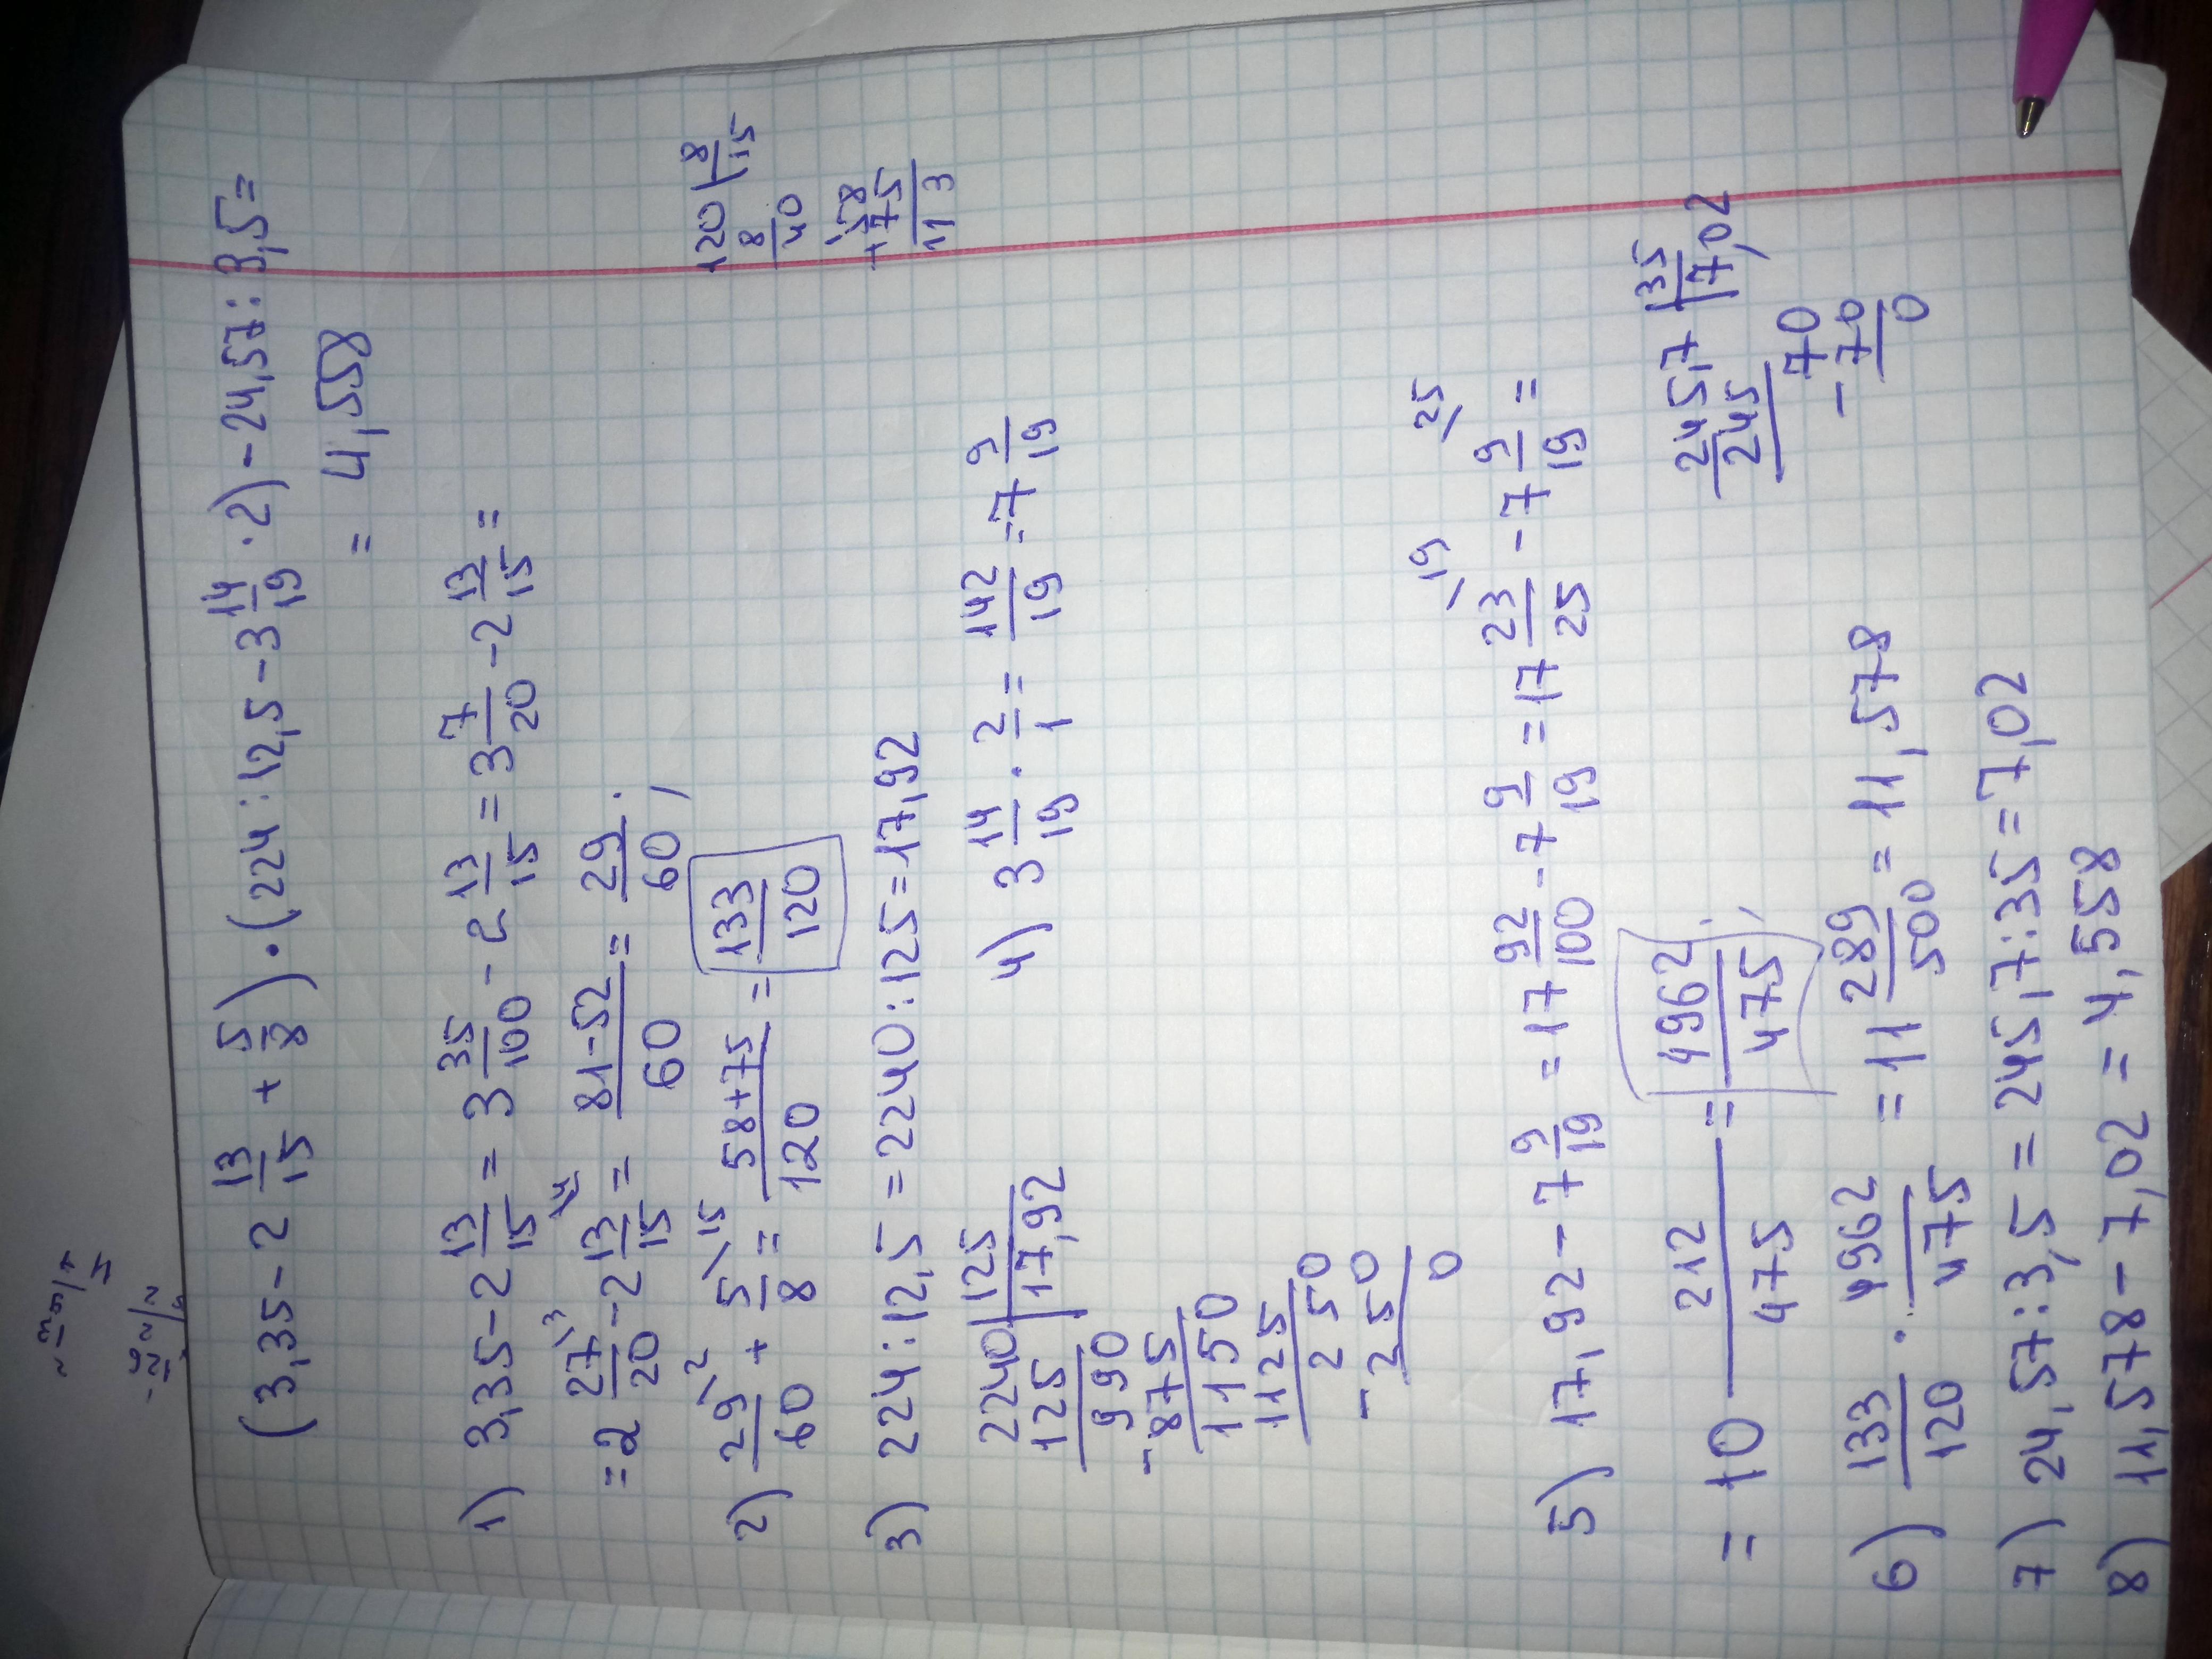 (3,35-2 13/15 + 5/8) · (224:12,5-3 14/19 · 2) - 24,57:3,5=
= 4,558
1) 3,35-2 13/15 = 3 35/100 - 2 13/15 = 3 7/20 - 2 13/15 =
= 2 27/20 - 2 13/15 = 81-52/60 = 29/60
2) 29/60 + 5/8 = 58+75/120 = 133/120
120 | 8
8 15
40
58
+75
113
3) 224:12,5 = 2240:125=17,92
2240 | 125
125 17,92
990
-875
1150
1125
250
-250
0
4) 3 14/19 · 2/1 = 142/19 = 7 9/19
5) 17,92-7 9/19 = 17 92/100 - 7 9/19 = 17 23/25 - 7 9/19 =
= 10 212/475 = 4962/475
245,7 | 35
245 7,02
70
-70
0
6) 133/120 · 4962/475 = 11 289/500 = 11,578
7) 24,57:3,5 = 245,7:35=7,02
8) 11,578-7,02 = 4,558